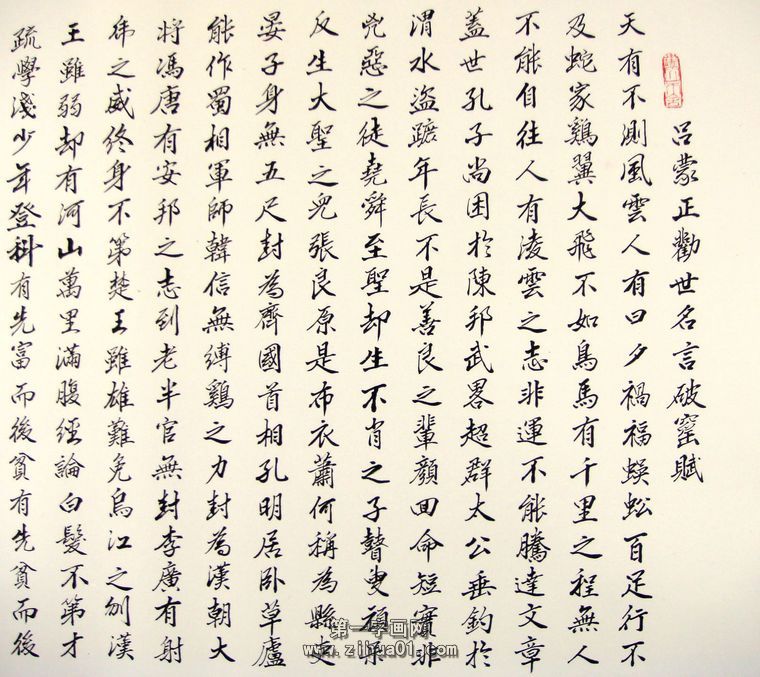 呂蒙正勸世名言破窰賦
天有不測風雲人有旦夕禍福蜈蚣百足行不
及蛇家鷄翼大飛不如鳥馬有千里之程無人
不能自往人有凌雲之志非運不能騰達文章
蓋世孔子尚困於陳邦武畧超群太公垂釣於
渭水盜蹠年長不是善良之輩顏回命短實非
兇惡之徒堯舜至聖却生不肖之子瞽叟頑呆
反生大聖之兒張良原是布衣蕭何稱為縣吏
晏子身無五尺封為齊國首相孔明居卧草廬
能作蜀相軍師韓信無縛鷄之力封為漢朝大
將馮唐有安邦之志到老半官無封李廣有射
虎之威終身不第楚王雖雄難免烏江之刎漢
王雖弱却有河山萬里滿腹經論白髮不第才
疏學淺少年登科有先富而後貧有先貧而後
第一字画网
www.zihua01.com